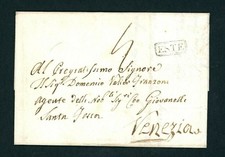 4
ESTE
Al Pregiatissimo Signore
Il Sig.r Domenico
Agente delli Nob.li Sig.ri Co: Giovanelli
Santa Fosca
Venezia